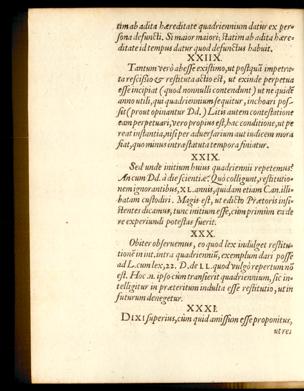 tim ab adita hæreditate quadriennium datur ex per-
sona defuncti. Si maior maiori; statim ab adita hære-
ditate id tempus datur quod defunctus habuit.
XXIIX.
Tantum verò abesse existimo, ut postquã impetra-
ta rescissio & restituta actio est, ut exinde perpetua
esse incipiat (quod nonnulli contendunt) ut ne quidẽ
anno utili, qui quadriennium sequitur, inchoari pos-
sit (prout opinantur Dd.) Litis autem contestatione
eam perpetuari, vero propius est, hac conditione, ut pe-
reat instantia, nisi per adversarium aut iudicem mora
fiat, quo minus intra statuta tempora finiatur.
XXIX.
Sed unde initium huius quadriennii repetemus?
An cum Dd. à die scientiæ? Quò colligunt, restitutio-
nem ignorantibus, XL. annis, quidam etiam Can. illi-
batam custodiri. Magis est, ut edicto Prætoris insi-
stentes dicamus, tunc initium esse, cùm primùm exde
re experiundi potestas fuerit.
XXX.
Obiter observemus, eo quod lex indulget restitu-
tionẽ in int. intra quadrienniũ, exemplum dari posse
ad L. cum lex, 22. D. de LL. quod vulgò repertum nõ
est. Hoc .n. ipso cùm transierit quadriennium, sic in-
telligitur in præteritum indulta esse restitutio, ut in
futurum denegetur.
XXXI.
DIXI superius, cùm quid amissum esse proponitur,
ut res